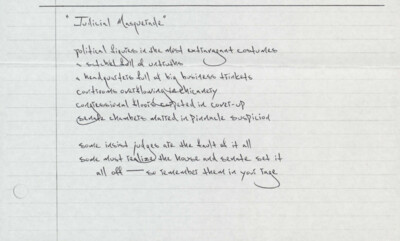 "Judicial Masquerade"
political figures in the most extravagant costumes
a satchel full of untruths
a headquarters full of big business trinkets
courtrooms overflowing chicanery
congressional floors depicted in cover-up
senate chambers massed in pinnacle suspicion
some insist judges are the fault of it all
some must realize the house and senate set it
all off — so remember them in your rage